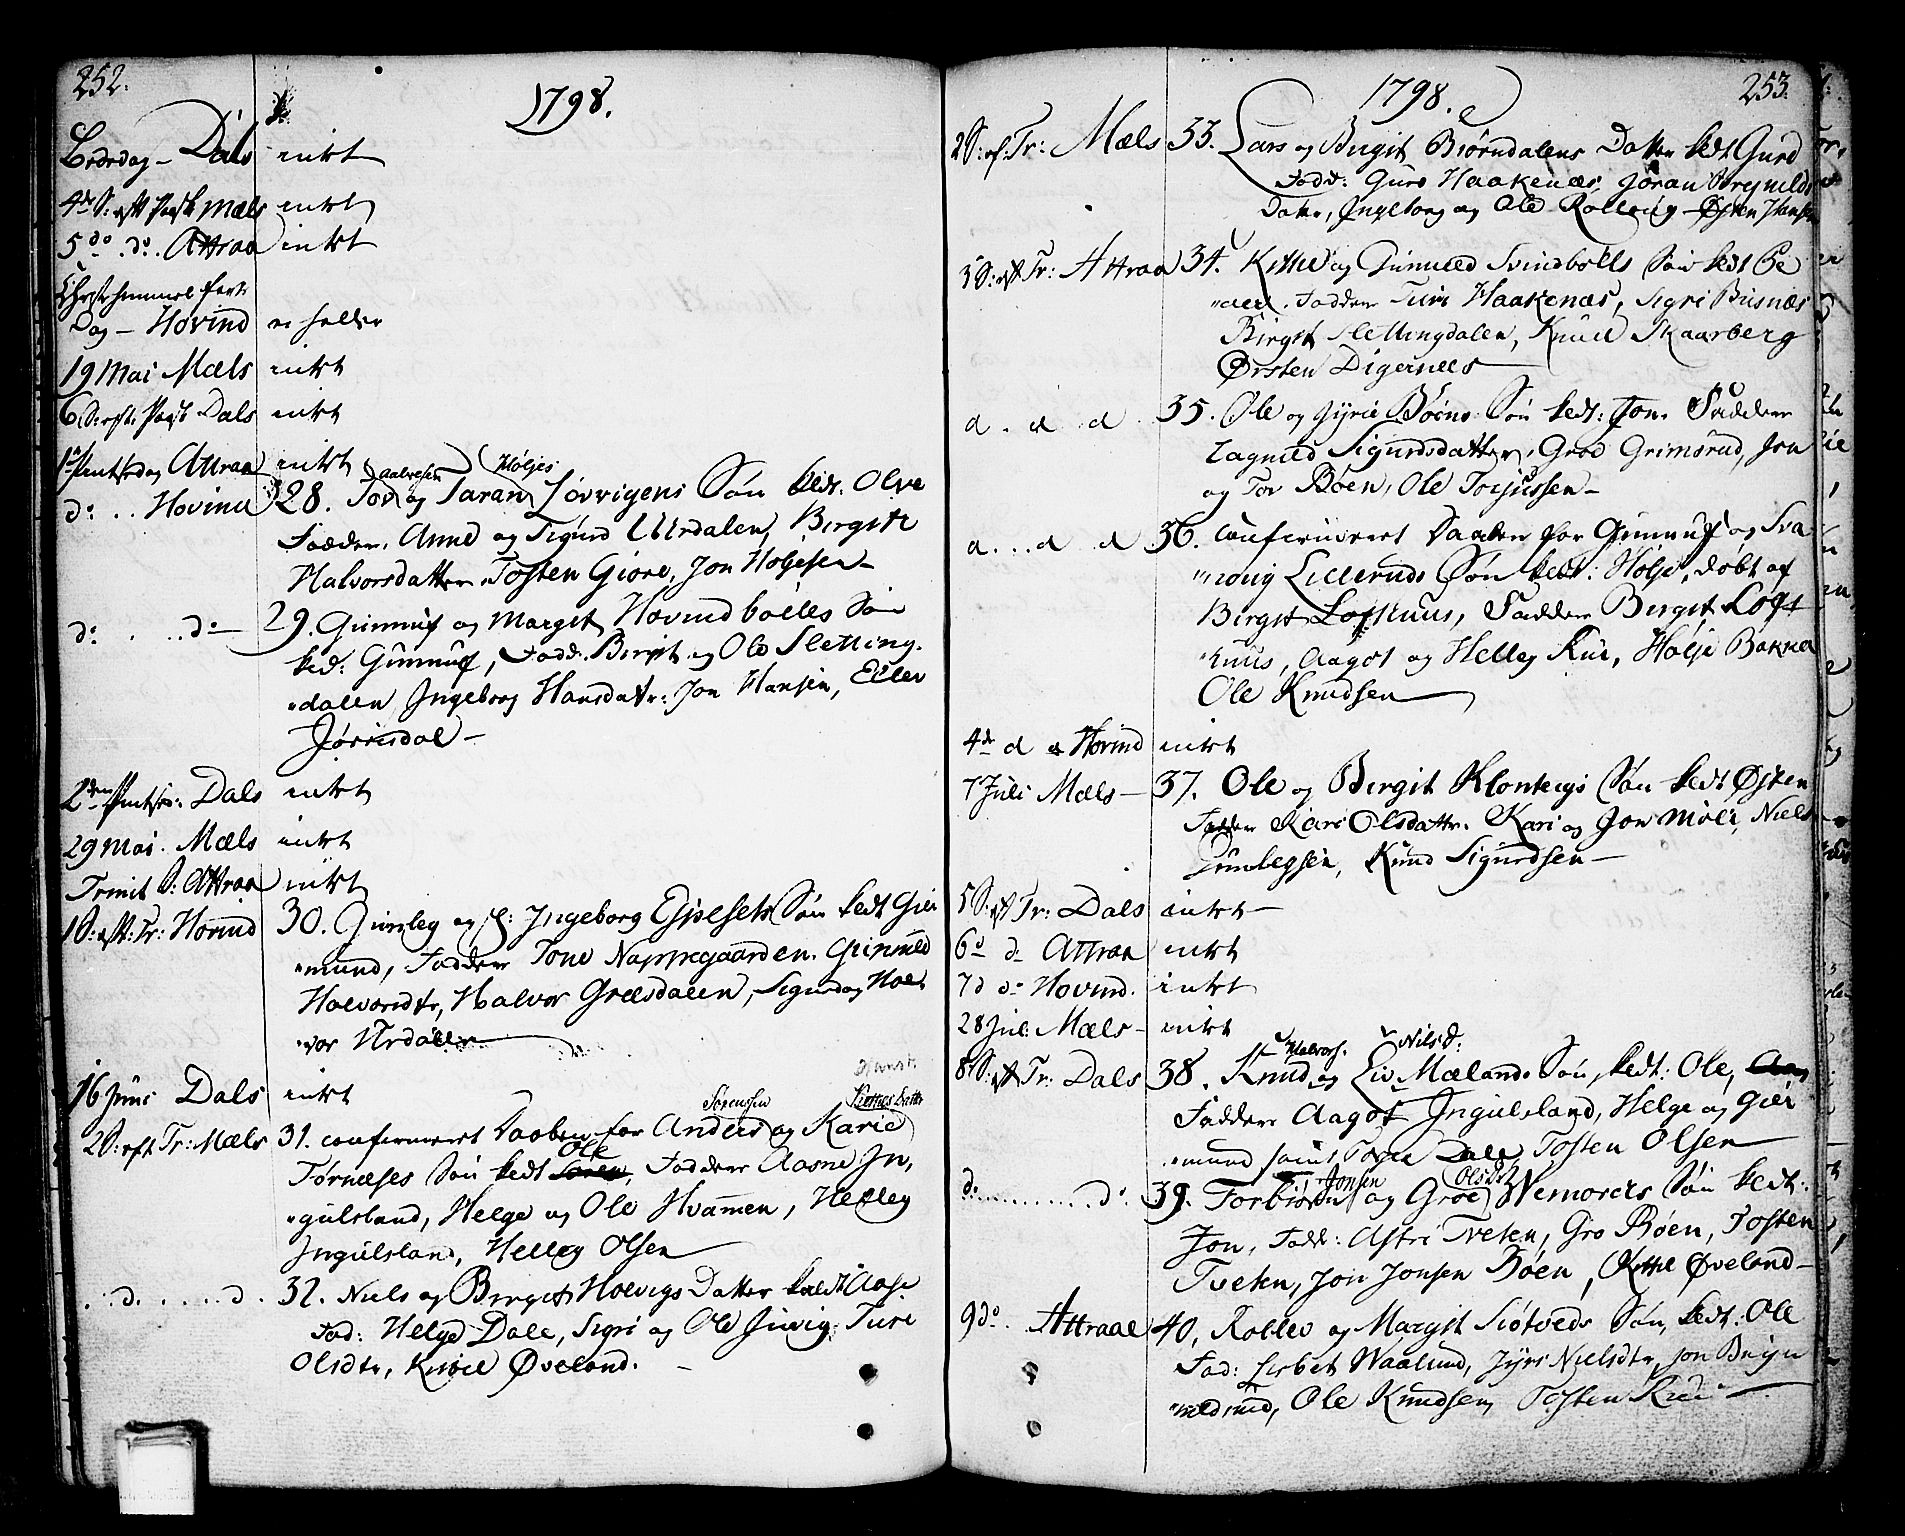 252.
1798.
Bededag - Dals intet
4de S: eft Paask Mæls intet
5 do do. Attraa intet
Christi himmel farts
Dag - Hovind ei heller
19 Mai Mæls intet
6 S: eft: Pask Dals intet
1ste Pintsedag Attraa intet
Aalvesen Høljes
do . . Hovind 28. Tov og Taran Løvvigens Søn kedt. Olve
Fadder. Anne og Sigurd Urdalen, Birgite
Halvorsdatter Tosten Giøre, Jon Holjesen
do . . . do 29. Gunnuf og Marget Hovindbøles Søn
ked: Gunnuf, Fadd. Birgit og Ole Sletting-
"dalen Ingeborg Hansdatr: Jon Hansen, Eilev
Jørisdal
2den Pintse: Dals intet
29 Mai. Mæls intet
Trinit S: Attraa intet
1 S: eft: Tr: Hovind 30. Gunleg og Ingeborg Espesets Søn kedt Gier
"mund, Fadder Tone Nappegaarden. Gunnild
Halvorsdtr, Halvor Græsdalen, Sigurd og Hal
"vor Urdalen
16 Juni Dals intet
Hansd:
Sørenssen Datter
2 S: eft Tr: Mæls 31. confirmeret Daaben for Anders og Karie
Ole
Tørneses Søn kedt Søren, Fadder Aasne In,
"gulsland, Helge og Ole Hvammen, Helleg
Ingulsland, Helleg Olsen
. . d . . . . d . 32. Niels og Birget Holvigs Datter kaldt Aase
Fad: Helge Dale, Sigri og Ole Juvig, Ture
Olsdtr, Kittil Øveland.
253.
1798.
2 S: ef: Tr: Mæls 33. Lars og Birgit Biørndalens Datter kedt Gurd
Fadd: Guro Haakenæs, Jøran
Datr, Ingeborg og Ole Rollevig Østen Hansen
3 S: eft Tr: Attraa 34. Kittil og Gunnild Svindbølls Søn kedt Pe
"der. Fadder Turi Haakenæs, Sigri Busnæs
Birgit Slettingdalen, Knud Skaarberg
Ørsten Digernees
d . d d 35. Ole og Jyrie Bøens Søn kedt: Jon. Fadder
Ragnild Sigurdsdatter, Groe Grimsrud, Jon
og Tov Bøen, Ole Torjussen
d . . . d . d 36. confirmeret Daaben for Gunnuf og Sva
"noug Lillerunds Søn kedt: Hølje, døbt af
Birgit Lofthuus, Fadder Birget Loft
"huus, Aagot og Helleg Rue, Hølje Bakken
Ole Knudsen
4de d Hovind intet
7 Juli Mæls 37. Ole og Birgit Klontegs Søn kedt Østen
Fadder Kari Olsdattr. Kari og Jon Mæli, Niels
Gunlegsen, Knud Sigurdsen
5 S: eft Tr: Dals intet
6 d Attraa intet
7 d do Hovind. intet
28 Jul: Mæls intet
Halvors. Nilsd:
8 S: eft Tr: Dals 38. Knud og Liv Mælands Søn kedt: Ole,
Fadder Aagot Ingulsland, Helge og Gier
"mund samt Dale, Tosten Olsen
Jonsen Olsdtr
do . . . . . do. 39. Torbiørn og Groe Wemorers Søn kedt:
Jon, Fadd: Astri Tveten, Gro Bøen, Tosten
Tveten, Jon Jonsen Bøen, Kittil Øveland
9 do. Attraae 40, Rollev og Margit Siøtveds Søn, kedt: Ole
Fad: Lisbet Waalund, Jyri Nielsdtr, Jon Bryn
"ildsrud, Ole Knudsen, Tosten Rue